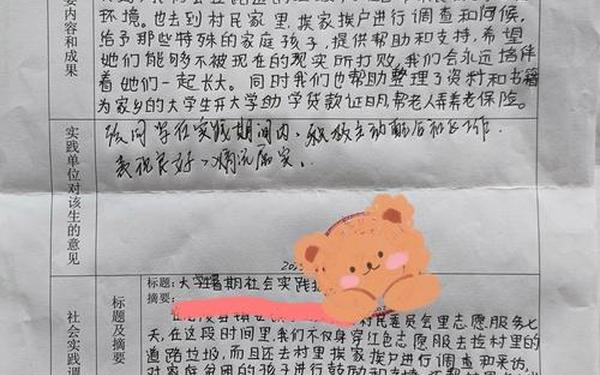 要内容和成果
环境。也去到村民家里，挨家挨户进行调查和问候，
给予那些特殊的家庭孩子，提供帮助和支持，希望
她们能够不被现在的现实所打败，我们会永远陪伴
着她们一起长大。同时我们也帮助整理了资料和书籍
为家乡的大学生开大学助学贷款证明，帮老人弄养老保险。
实践单位对该生的意见
该同学在实践期间内，积极主动配合和工作
表现良好，情况属实。
202
标题：大学暑期社会实践
摘要：
标题及摘要
社会实践调
村民委员会里志愿服务七
天，在这段时间里，我们不仅身穿红色志愿服去捡村里的
道路垃圾，而且还去村里挨家挨户进行调查和采访，
对家庭贫困的孩子进行鼓励和